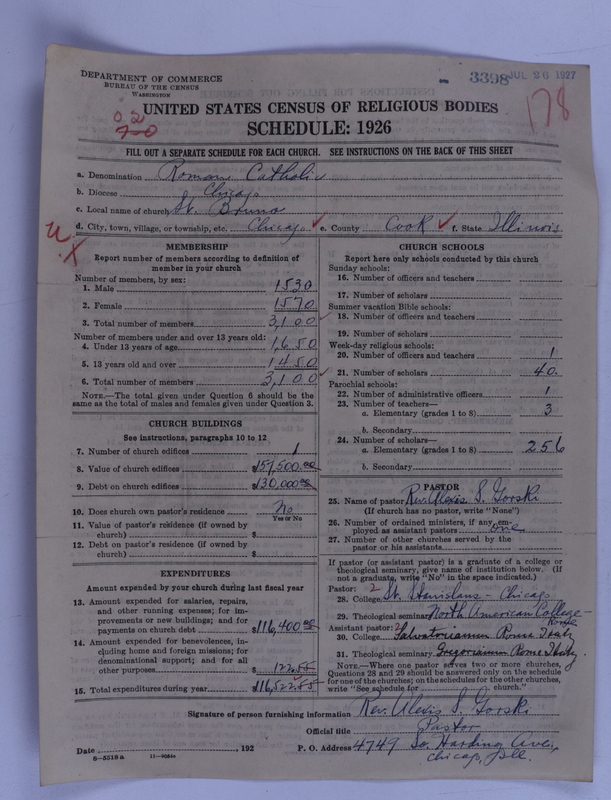 DEPARTMENT OF COMMERCE
BUREAU OF THE CENSUS
WASHINGTON
3398 JUL 26 1927
178
UNITED STATES CENSUS OF RELIGIOUS BODIES
SCHEDULE: 1926
FILL OUT A SEPARATE SCHEDULE FOR EACH CHURCH. SEE INSTRUCTIONS ON THE BACK OF THIS SHEET
a. Denomination Roman Catholic
b. Diocese Chicago
c. Local name of church St. Bruno
d. City, town, village, or township, etc. Chicago e. County Cook f. State Illinois
MEMBERSHIP
Report number of members according to definition of
member in your church
Number of members, by sex:
1. Male 1530
2. Female 1570
3. Total number of members 3,100
Number of members under and over 13 years old:
4. Under 13 years of age 1,650
5. 13 years old and over 1450
6. Total number of members 3,100
NOTE.—The total given under Question 6 should be
same as the total of males and females given under Question 3.
CHURCH BUILDINGS
See instructions, paragraphs 10 to 12
7. Number of church edifices 1
8. Value of church edifices $157,500.00
9. Debt on church edifices $130,000.00
10. Does church own pastor's residence No
Yes or No
11. Value of pastor's residence (if owned by
church) $
12. Debt on pastor's residence (if owned by
church) $
EXPENDITURES
Amount expended by your church during last fiscal year
13. Amount expended for salaries, repairs,
and other running expenses; for im-
provements or new buildings; and for
payments on church debt $116,400.00
14. Amount expended for benevolences, in-
cluding home and foreign missions; for
denominational support; and for all
other purposes $122.55
15. Total expenditures during year $116,522.55
CHURCH SCHOOLS
Report here only schools conducted by this church
Sunday schools:
16. Number of officers and teachers
17. Number of scholars
Summer vacation Bible schools:
18. Number of officers and teachers
19. Number of scholars
Week-day religious schools:
20. Number of officers and teachers 1
21. Number of scholars 40
Parochial schools:
22. Number of administrative officers 1
23. Number of teachers—
a. Elementary (grades 1 to 8) 3
b. Secondary
24. Number of scholars—
a. Elementary (grades 1 to 8) 256
b. Secondary
PASTOR
25. Name of pastor Rev. Alexis S. Gorski
(If church has no pastor, write "None")
26. Number of ordained ministers, if any, em-
ployed as assistant pastors one
27. Number of other churches served by the
pastor or his assistants
If pastor (or assistant pastor) is a graduate of a college or
theological seminary, give name of institution below. (If
not a graduate, write "No" in the space indicated.)
Pastor: 2
28. College St. Stanislaus - Chicago
29. Theological seminary North American College - Rome
Assistant pastor: 2
30. College Salvatorianum Rome Italy
31. Theological seminary Gregorianum Rome Italy
NOTE.—Where one pastor serves two or more churches,
Questions 28 and 29 should be answered only on the schedule
for one of the churches; on the schedules for the other churches,
write "See schedule for church."
Signature of person furnishing information Rev. Alexis S. Gorski
Official title Pastor
Date , 192 P. O. Address 4749 So. Harding Ave.,
Chicago, Ill.
8-5318a